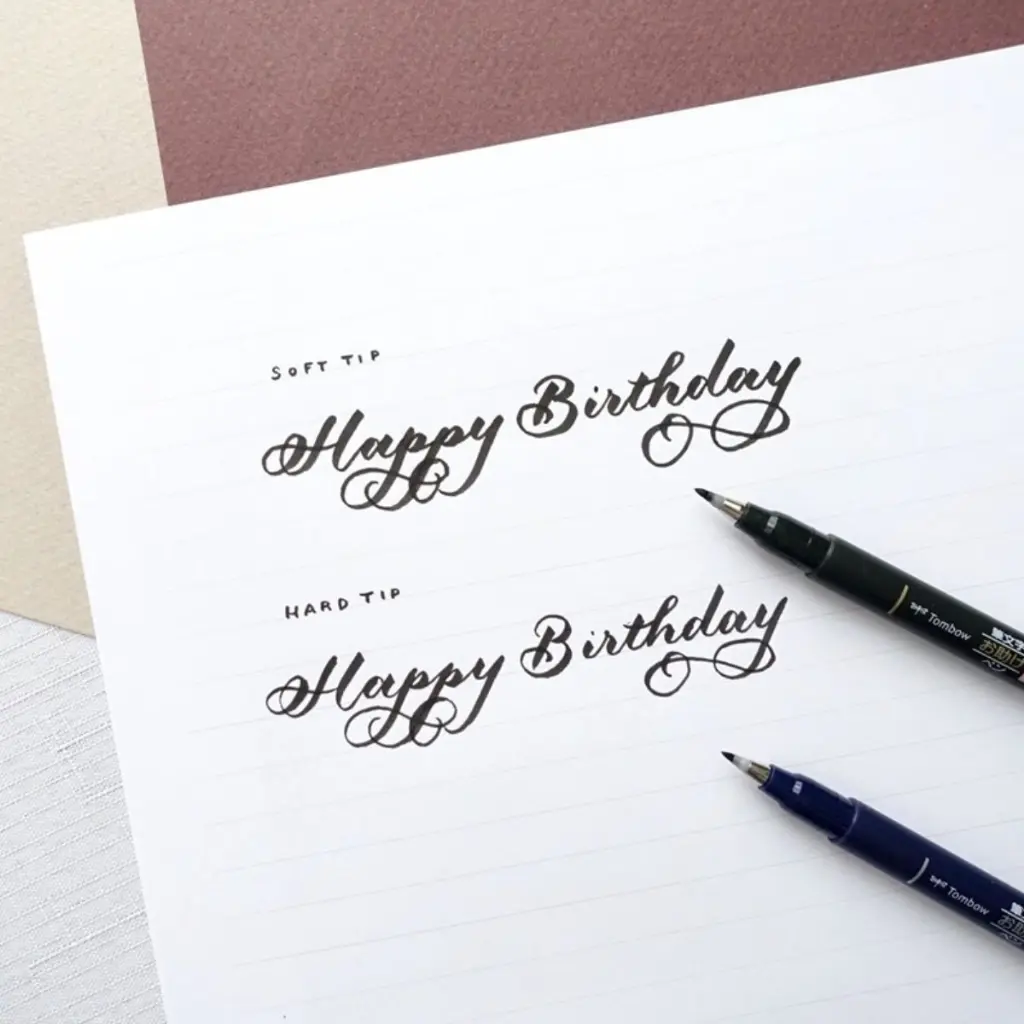 SOFT TIP
Happy Birthday
HARD TIP
Happy Birthday
Tombow
筆文字
お助け
ペン
Tombow